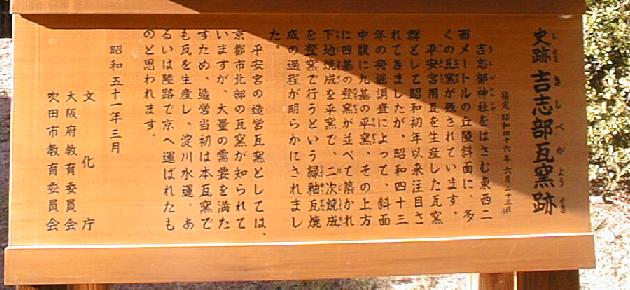 史跡 吉志部瓦窯跡
しせき きしべがようせき
指定 昭和四十六年六月二十三日
吉志部神社をはさむ東西二
百メートルの丘陵斜面に、多
くの瓦窯が残されています。
平安宮用瓦を生産した瓦窯
群として昭和初年以来注目さ
れてきましたが、昭和四十三
年の発掘調査によって、斜面
中腹に九基の平窯、その上方
に四基の登窯が並べて築かれ
下地焼成を平窯で、二次焼成
を登窯で行うという緑釉瓦焼
成の過程が明らかにされまし
た。
平安宮の造営瓦窯としては、
京都市北部の瓦窯が知られて
いますが、大量の需要を満た
すため、造営当初は本瓦窯で
も瓦を生産し、淀川水運、あ
るいは陸路で京へ運ばれたも
のと思われます。
昭和五十一年三月
文化庁
大阪府教育委員会
吹田市教育委員会